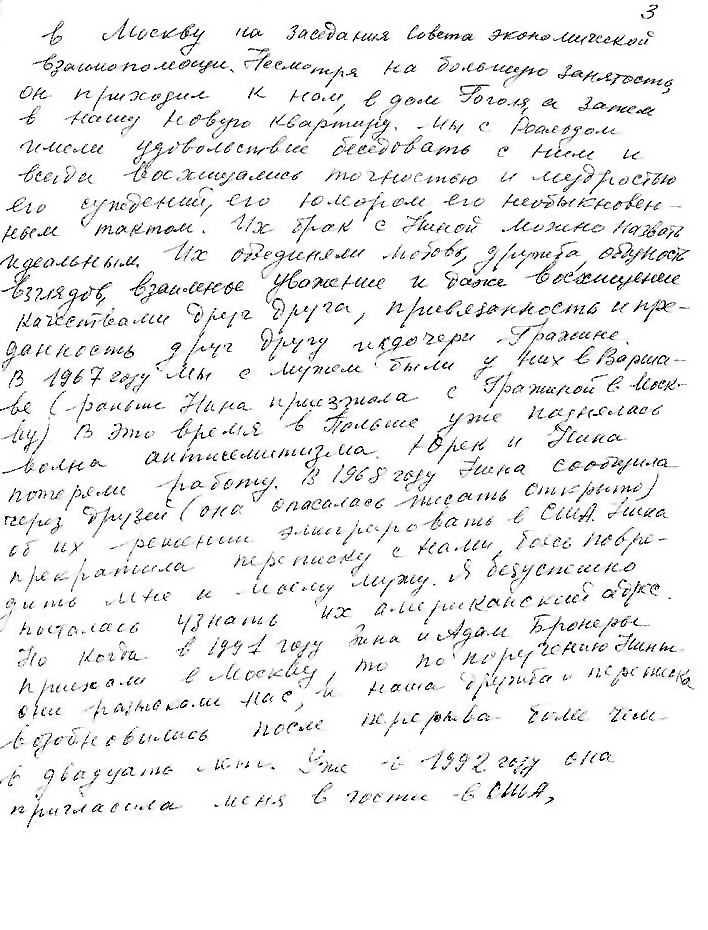 3
в Москву на заседания Совета экономической
взаимопомощи. Несмотря на большую занятость,
он приходил к нам, в дом Гоголя, а затем
в нашу новую квартиру. Мы с Роальдом
имели удовольствие беседовать с ним и
всегда восхищались точностью и мудростью
его суждений, его юмором его необыкновен-
ным тактом. Их брак с Ниной можно назвать
идеальным. Их объединяли любовь, дружба, общность
взглядов, взаимное уважение и даже восхищение
качествами друг друга, привязанность и пре-
данность друг другу и к дочери Гражине.
В 1967 году мы с мужем были у них в Варша-
ве (раньше Нина приезжала с Гражиной в Моск-
ву) В это время в Польше уже поднялась
волна антисемитизма. Юрек и Нина
потеряли работу. В 1968 году Нина сообщила
через друзей (она опасалась писать открыто)
об их решении эмигрировать в США. Нина
прекратила переписку с нами, боясь повре-
дить мне и моему мужу. Я безуспешно
пыталась узнать их американский адрес.
Но когда в 1991 году Зина и Адам Бронеры
приехали в Москву, то по поручению Нины
они разыскали нас, и наша дружба и переписка
возобновились после перерыва более чем
в двадцать лет. Уже в 1992 году она
пригласила меня в гости в США,